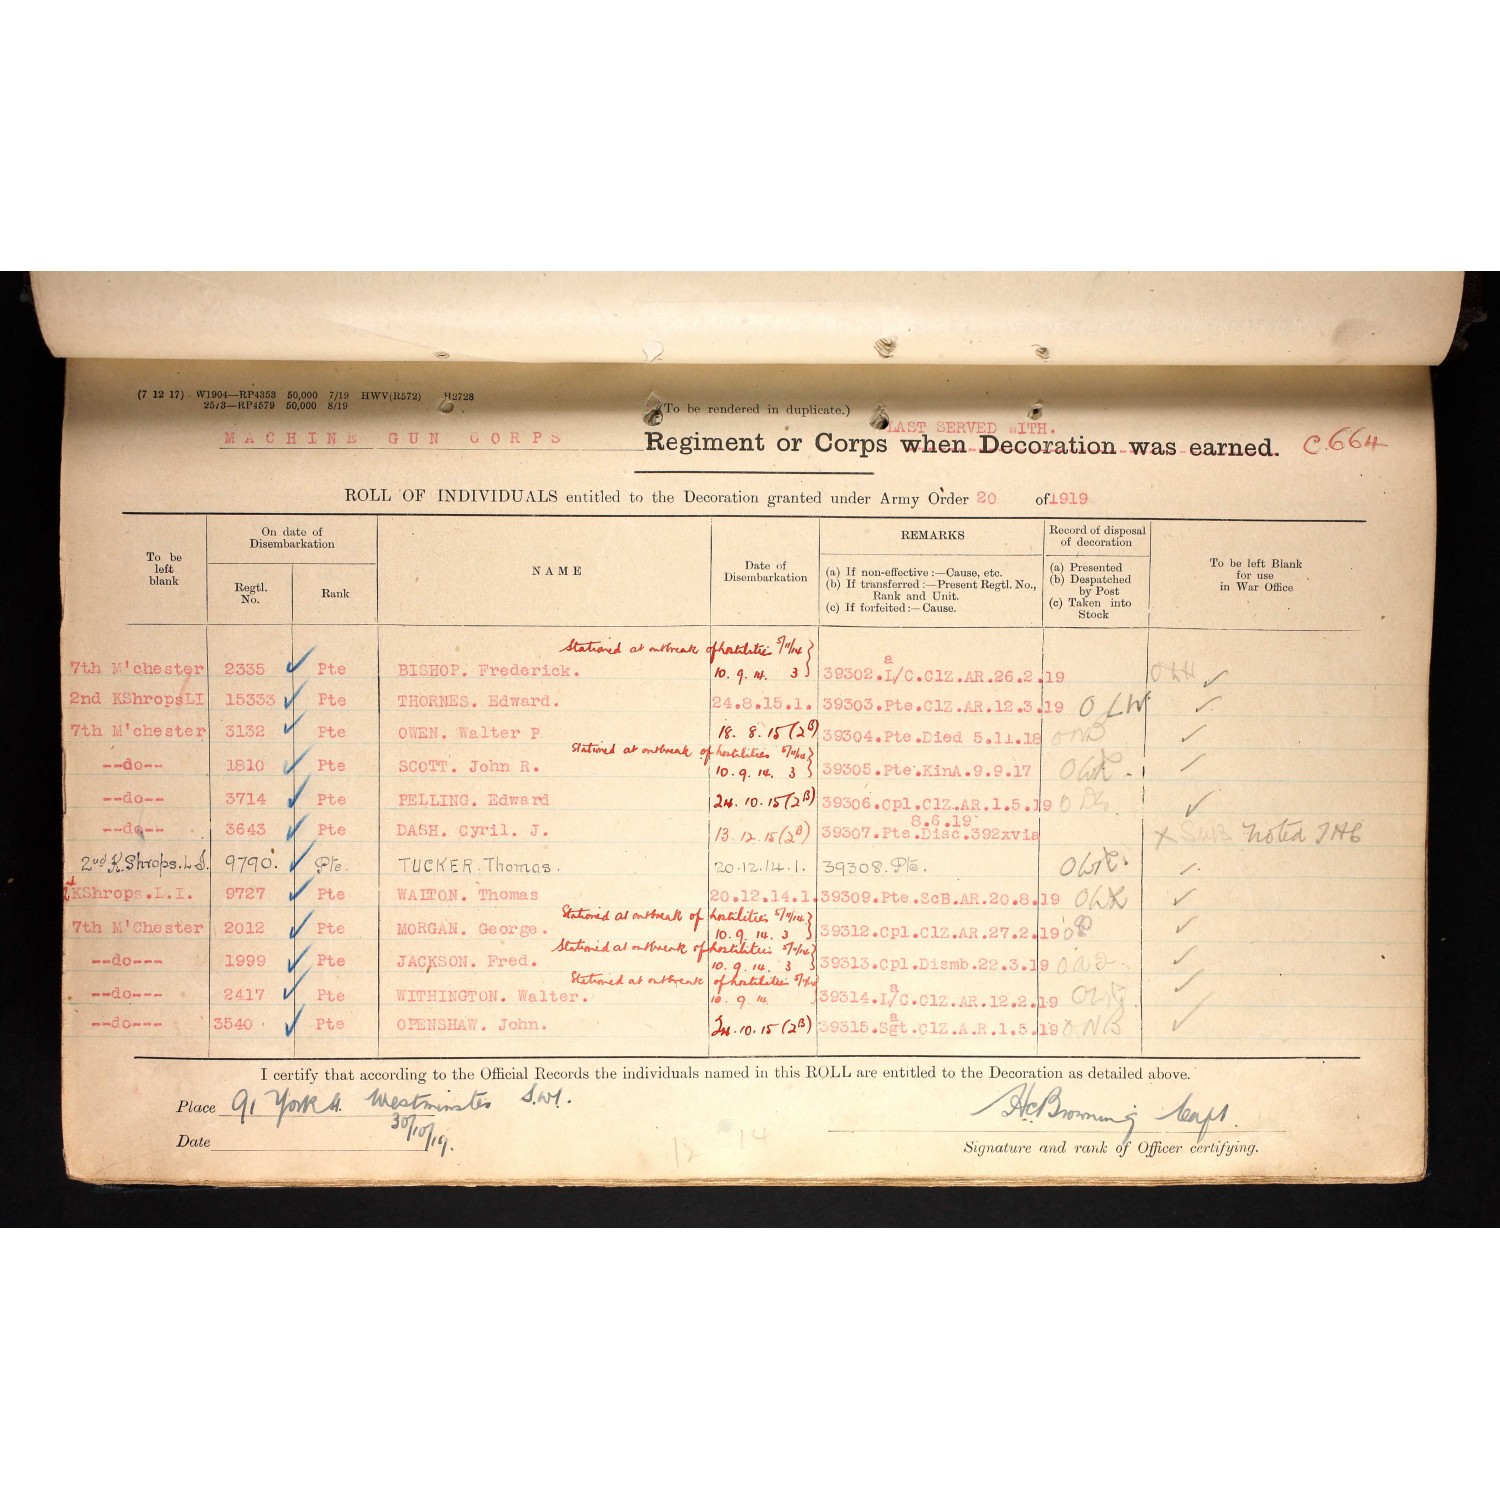 (7 12 17) W1904—RP4353 50,000 7/19 HWV(R572) H2728
2573—RP4579 50,000 8/19
(To be rendered in duplicate.)
LAST SERVED WITH.
MACHINE GUN CORPS Regiment or Corps when Decoration was earned. C.664
ROLL OF INDIVIDUALS entitled to the Decoration granted under Army Order 20 of 1919
To be left blank
On date of Disembarkation
Regtl. No.
Rank
NAME
Date of Disembarkation
REMARKS
(a) If non-effective:—Cause, etc.
(b) If transferred:—Present Regtl. No., Rank and Unit.
(c) If forfeited:—Cause.
Record of disposal of decoration
(a) Presented
(b) Despatched by Post
(c) Taken into Stock
To be left Blank for use in War Office
Stationed at outbreak of hostilities 5/11/14
7th M'chester 2335 Pte BISHOP. Frederick. 10. 9. 14. 3 39302.L/C.ClZ.AR.26.2.19
2nd KShropsLI 15333 Pte THORNES. Edward. 24.8.15.1. 39303.Pte.ClZ.AR.12.3.19 O LW
7th M'chester 3132 Pte OWEN. Walter P 18. 8. 15 (2B) 39304.Pte.Died 5.11.18 O NB
Stationed at outbreak of hostilities 5/11/14
--do-- 1810 Pte SCOTT. John R. 10. 9. 14. 3 39305.Pte.KinA.9.9.17
--do-- 3714 Pte PELLING. Edward 24. 10. 15 (2B) 39306.Cpl.ClZ.AR.1.5.19
8.6.19
--do-- 3643 Pte DASH. Cyril. J. 13. 12. 15 (2B) 39307.Pte.Disc.392xvia X Noted
2nd K. Shrops. L.I. 9790. Pte. TUCKER. Thomas. 20.12.14.1. 39308. Pte.
KShrops.L.I. 9727 Pte WALTON. Thomas 20.12.14.1. 39309.Pte.ScB.AR.20.8.19
Stationed at outbreak of hostilities 5/11/14
7th M'Chester 2012 Pte MORGAN. George. 10. 9. 14. 3 39312.Cpl.ClZ.AR.27.2.19
Stationed at outbreak of hostilities 5/11/14
--do--- 1999 Pte JACKSON. Fred. 10. 9. 14. 3 39313.Cpl.Dismb.22.3.19
Stationed at outbreak of hostilities
--do--- 2417 Pte WITHINGTON. Walter. 10. 9. 14. 39314.L/C.ClZ.AR.12.2.19
--do--- 3540 Pte OPENSHAW. John. 24. 10. 15 (2B) 39315.Sgt.ClZ.A.R.1.5.19 O NB
I certify that according to the Official Records the individuals named in this ROLL are entitled to the Decoration as detailed above.
Place 91 York St. Westminster S.W1. H C Browning Capt.
Date 30/10/19. Signature and rank of Officer certifying.
12 14